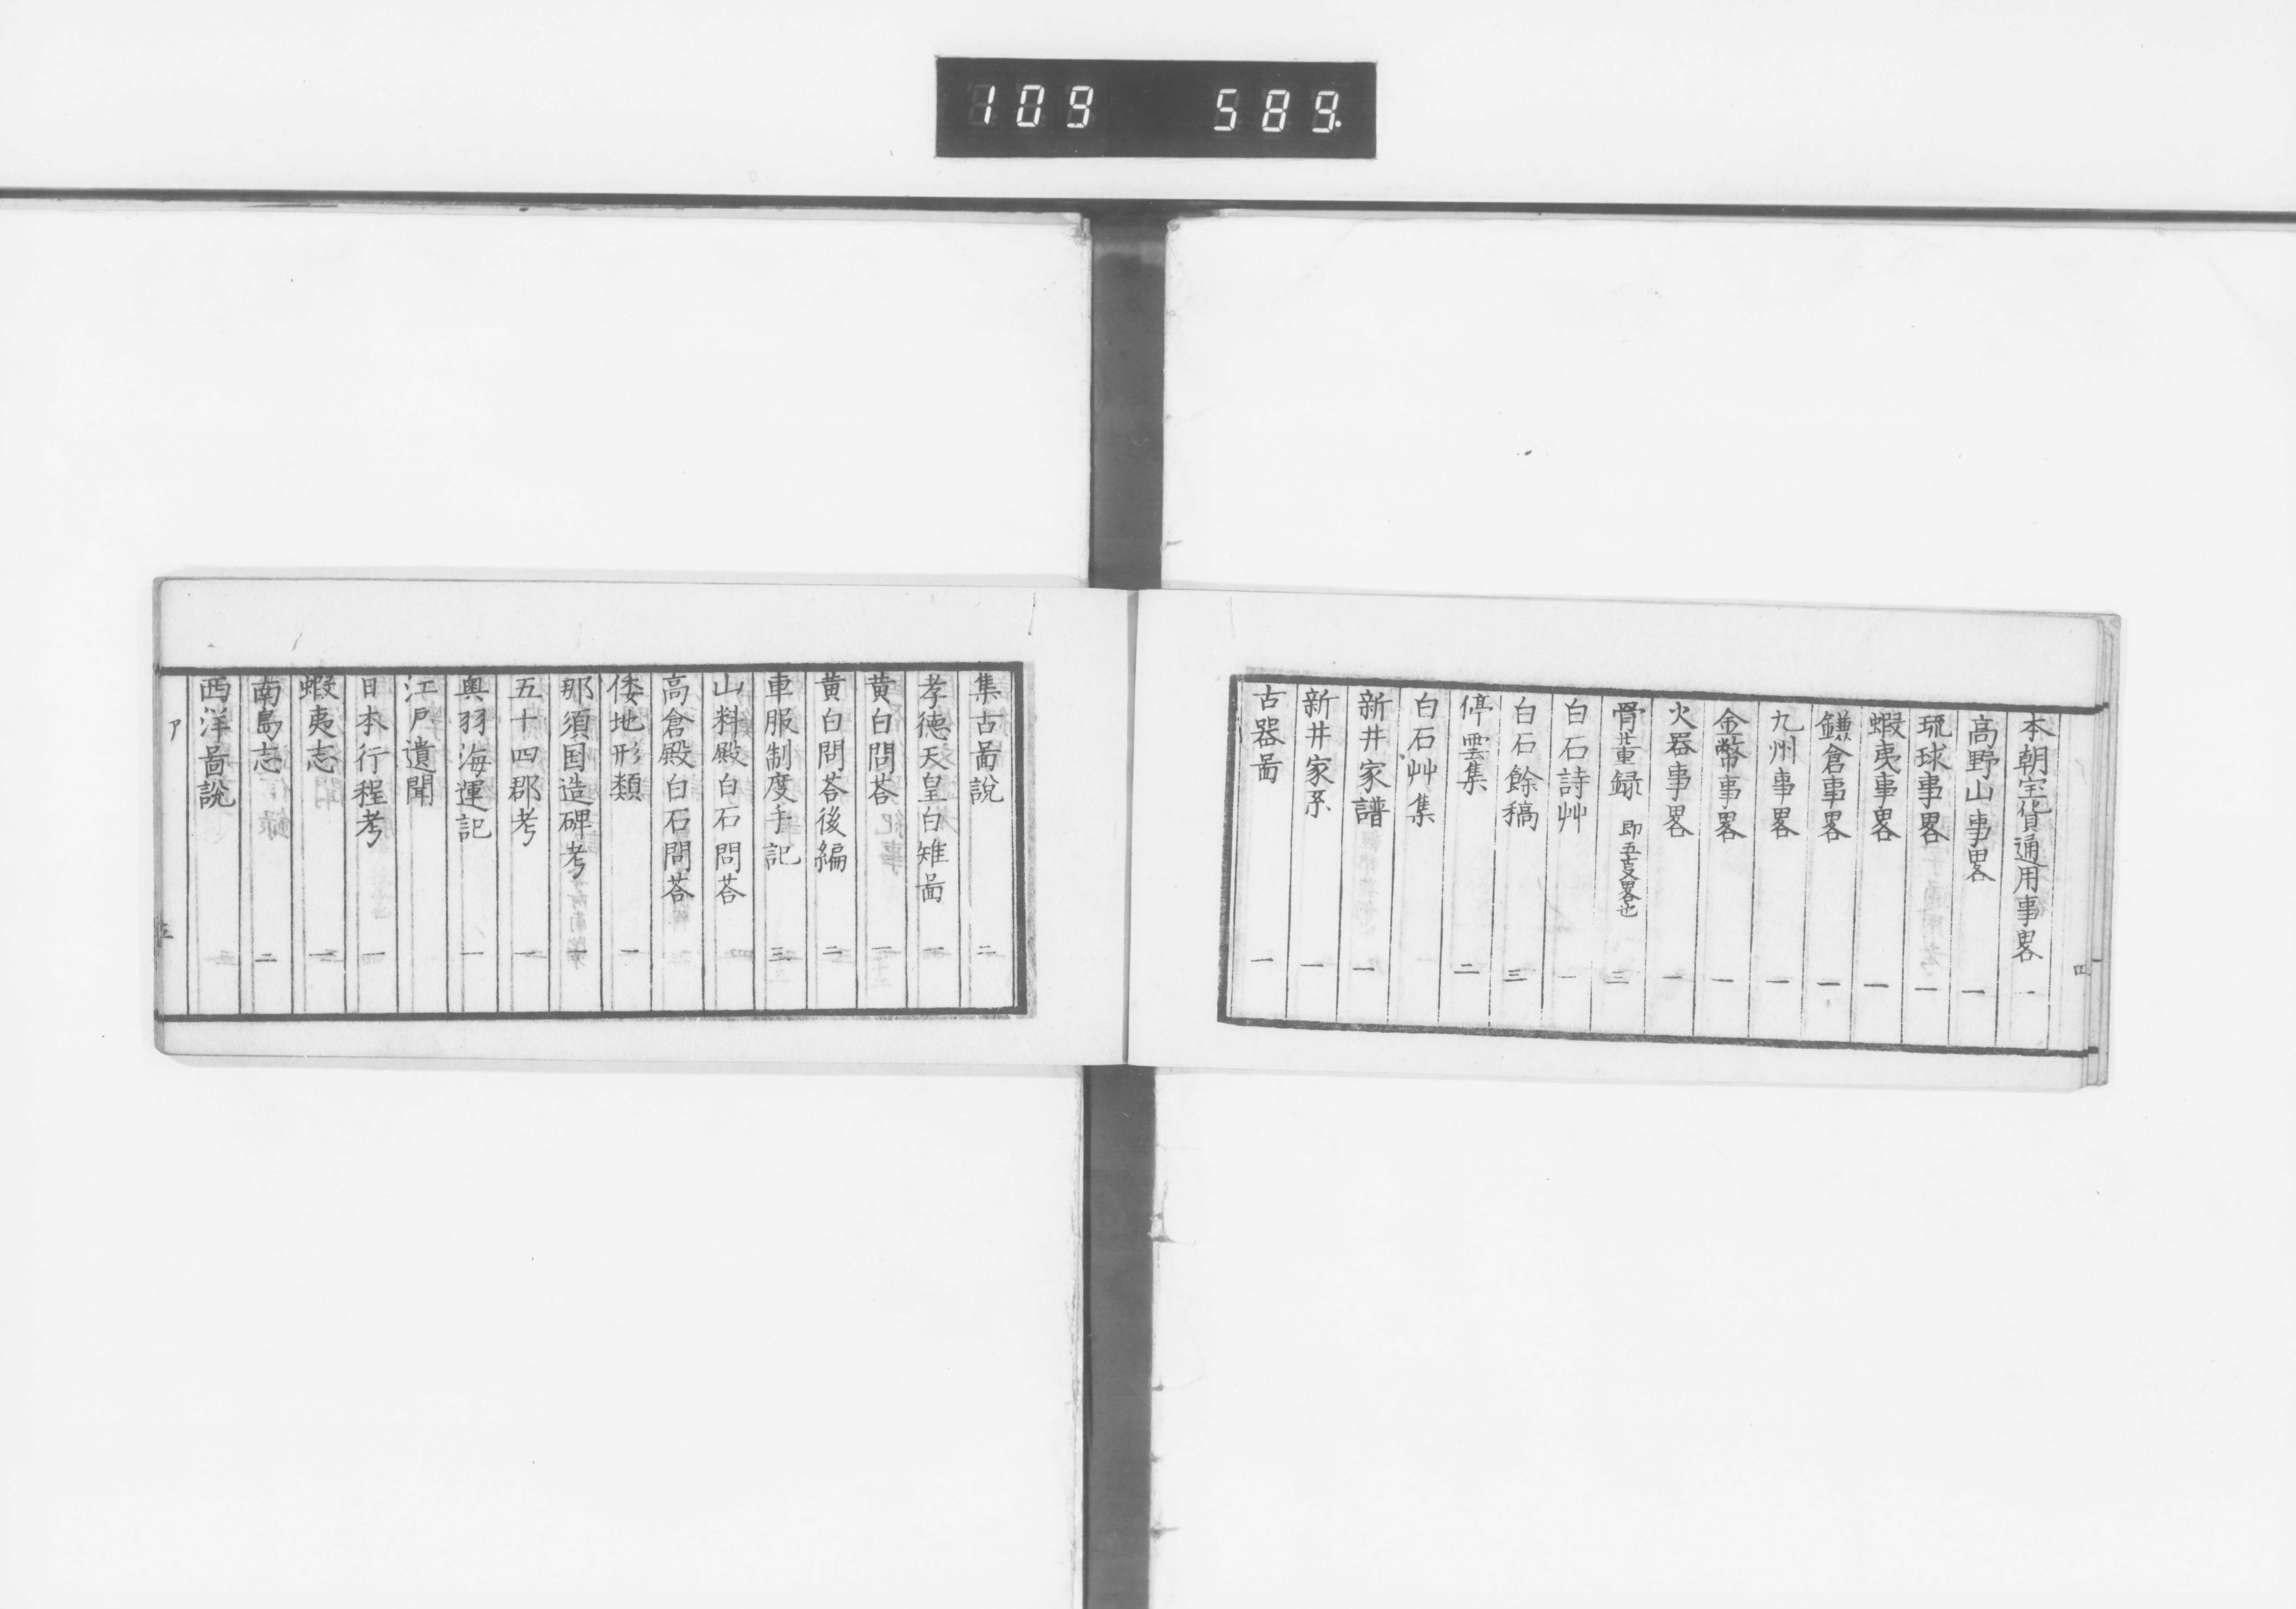 109 589.
本朝宝貨通用事畧 一
高野山事畧 一
琉球事畧 一
蝦夷事畧 一
鎌倉事畧 一
九州事畧 一
金幣事畧 一
火器事畧 一
骨董録 即五㕝畧也 三
白石詩艸 一
白石餘稿 三
停雲集 二
白石艸集
新井家譜 一
新井家系 一
古器啚 一
四
集古啚説 二
孝徳天皇白雉啚 一
黄白問荅 一
黄白問荅後編 二
車服制度手記 三
山科殿白石問荅
高倉殿白石問荅
倭地形類 一
那須国造碑考
五十四郡考 一
奥羽海運記 一
江戸遺聞
日本行程考 一
蝦夷志 一
南島志 二
西洋啚説
ア
五